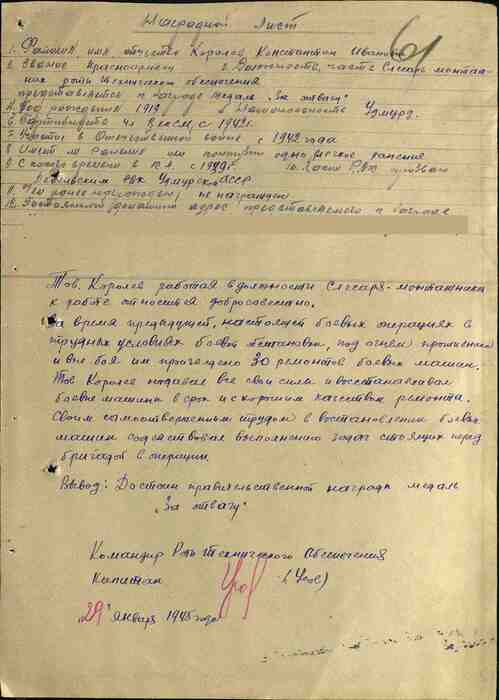 Наградной лист
61
1. Фамилия, имя, отчество Королев Константин Иванович
2. Звание Красноармеец 3. Должность, часть Слесарь-монтаж-
ник роты технического обеспечения
представляется к награде медаль „За отвагу"
4. Год рождения 1919 5. Национальность Удмурд.
6. Партийность чл. ВЛКСМ с 1942 г.
7. Участие в Отечественной войне с 1942 года
8. Имеет ли ранения или контузии одно легкое ранение
9. С какого времени в К.А. с 1939 г. 10. Каким РВК призван
РВК Удмурской АССР.
11. Чем ранее награжден не награжден
12. Постоянный домашний адрес представляемого к награде
Тов. Королев работая в должности Слесаря-монтажника
к работе относится добросовестно.
За время предидущей, настоящей боевых операциях в
трудных условиях боевой обстановки, под огнем противника
и вне боя им произведено 30 ремонтов боевых машин.
Тов Королев отдавал все свои силы и восстанавливал
боевые машины в срок и с хорошим качеством ремонта.
Своим самоотверженным трудом в востановлении боевых
машин содействовал выполнению задач стоящих перед
бригадой в операции
Вывод: Достоин правительственной награды медаль
„За отвагу"
Командир Роты Технического Обеспечения
Капитан (Усов)
29 января 1945 года